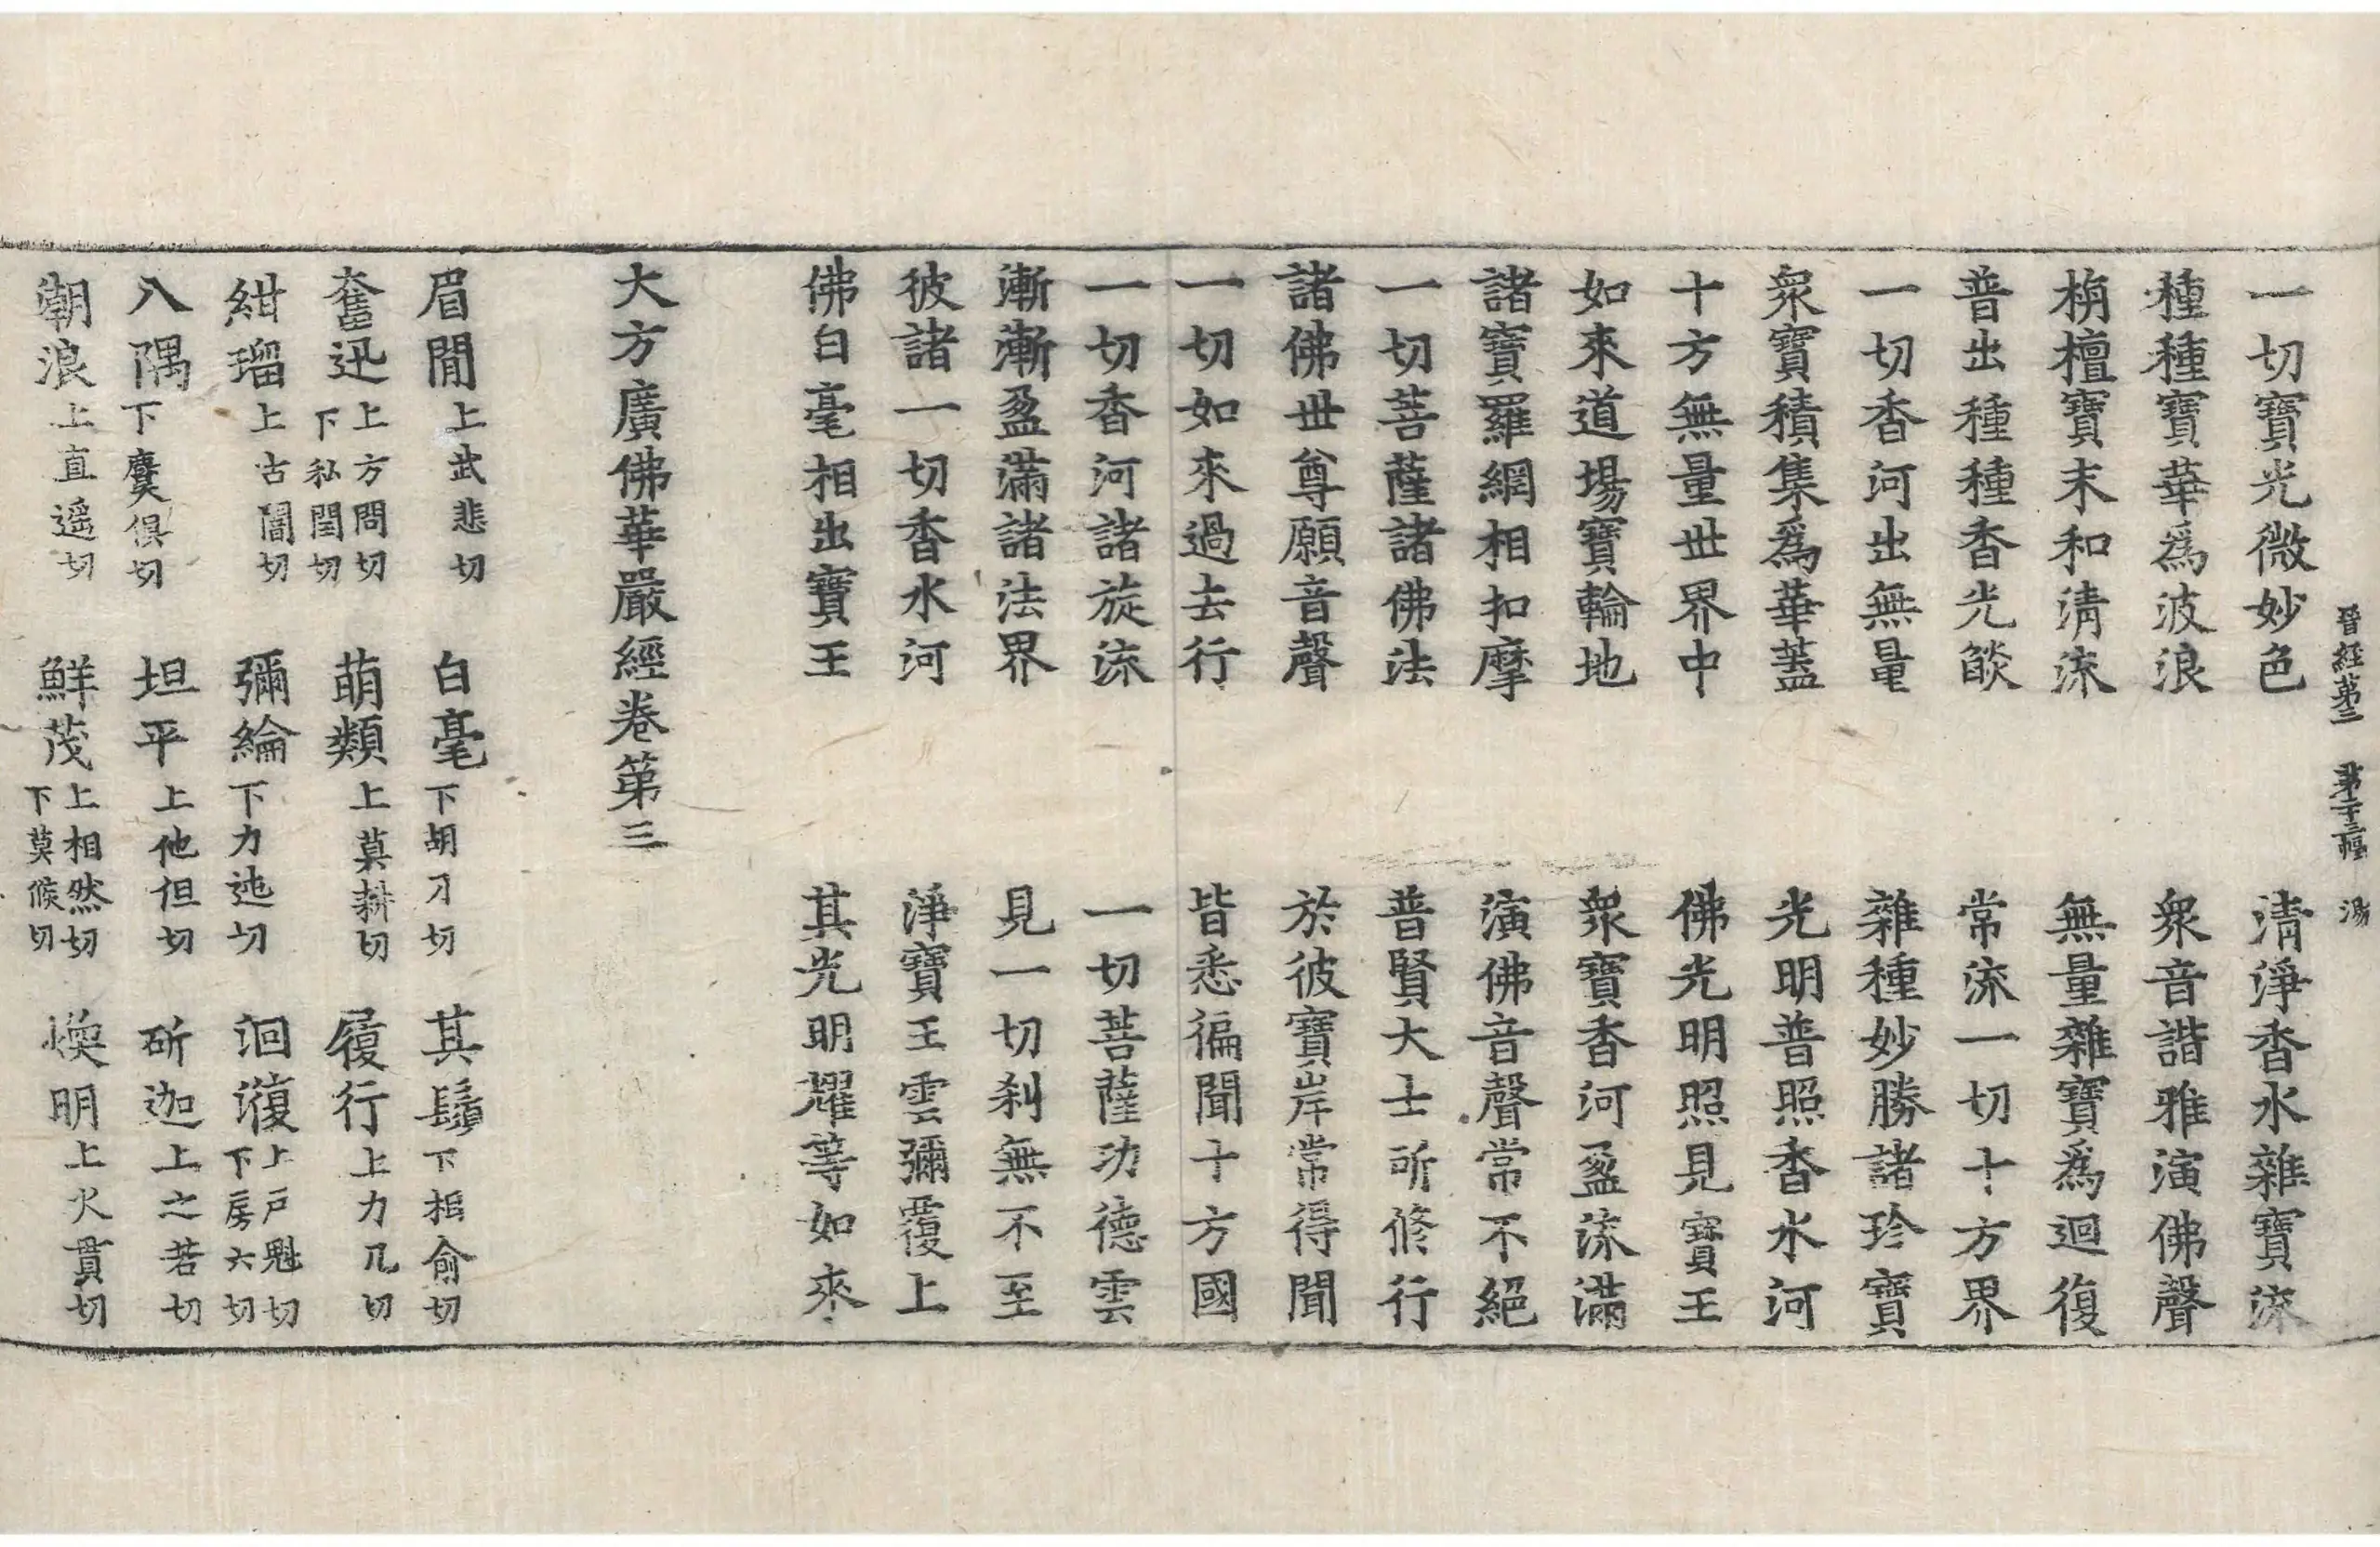 晉經第三 第二十三幅 湯
一切寶光微妙色 清淨香水雜寶流
種種寶華爲波浪 衆音諧雅演佛聲
栴檀寶末和清流 無量雜寶爲迴復
普出種種香光燄 常流一切十方界
一切香河出無量 雜種妙勝諸珍寶
衆寶積集爲華蓋 光明普照香水河
十方無量世界中 佛光明照見寶王
如來道場寶輪地 衆寶香河盈流滿
諸寶羅網相扣摩 演佛音聲常不絕
一切菩薩諸佛法 普賢大士所修行
諸佛世尊願音聲 於彼寶岸常得聞
一切如來過去行 皆悉徧聞十方國
一切香河諸旋流 一切菩薩功德雲
漸漸盈滿諸法界 見一切刹無不至
彼諸一切香水河 淨寶王雲彌覆上
佛白毫相出寶王 其光明耀等如來
大方廣佛華嚴經卷第三
眉間上武悲切 白毫下胡刀切 其鬚下相俞切
奮迅上方問切下私閏切 萌類上莫耕切 履行上力几切
紺瑠上古闇切 彌綸下力迍切 洄澓上戸魁切下房六切
八隅下麌俱切 坦平上他但切 斫迦上之若切
朝浪上直遥切 鮮茂上相然切下莫候切 煥明上火貫切